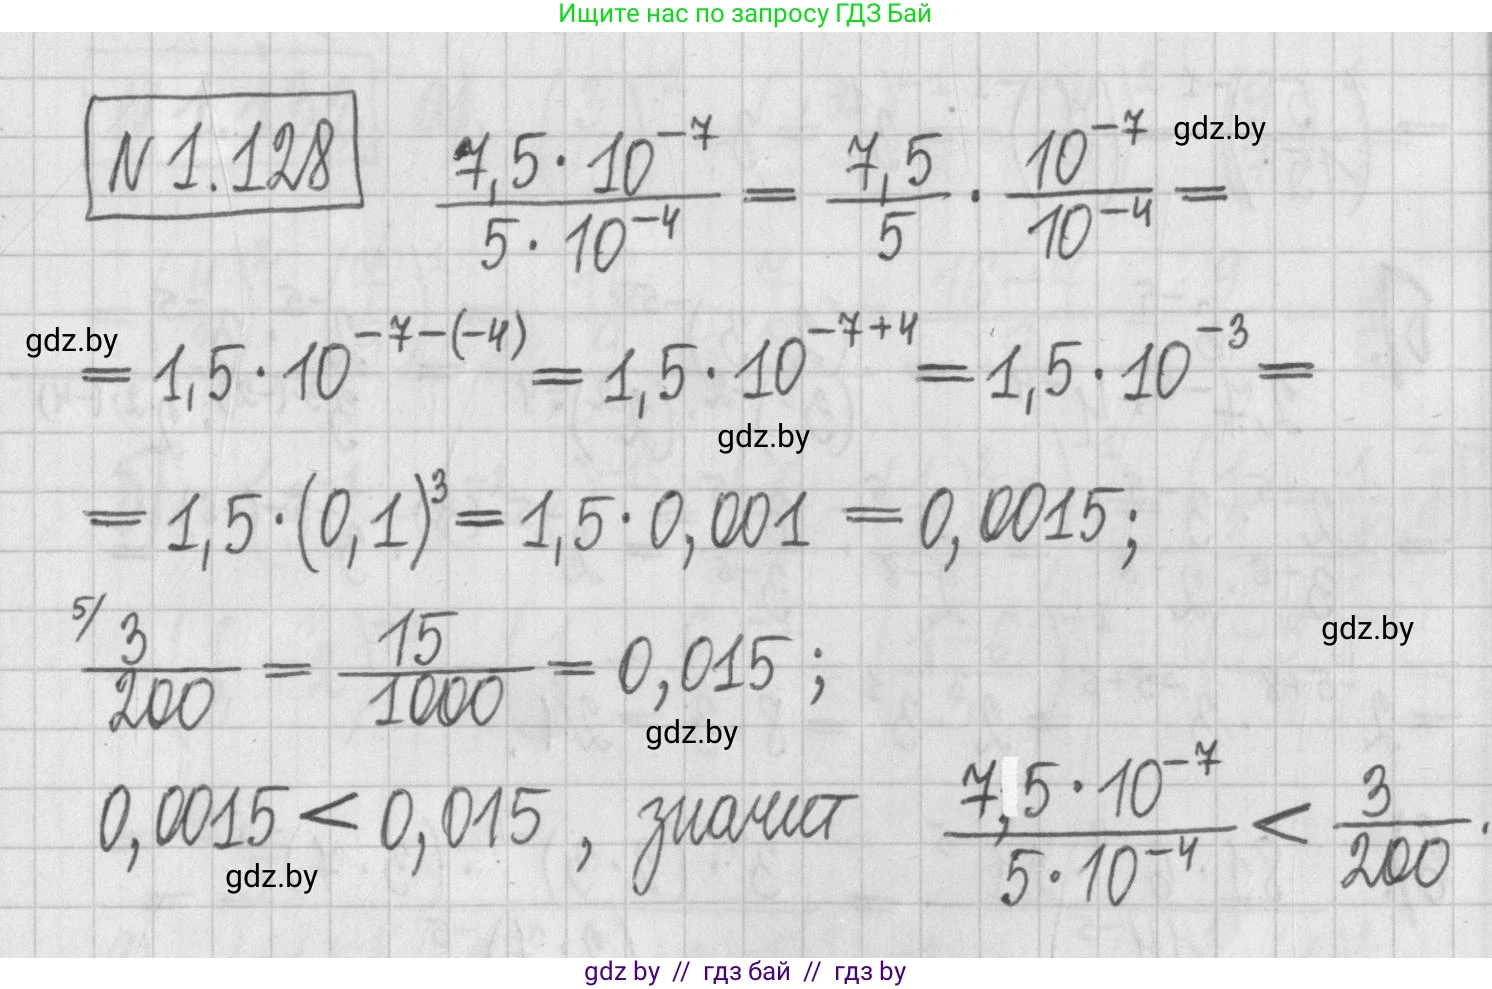 Ищите нас по запросу ГДЗ Бай
N 1.128 7,5·10⁻⁷/5·10⁻⁴ = 7,5/5 · 10⁻⁷/10⁻⁴ =
gdz.by
= 1,5·10⁻⁷⁻⁽⁻⁴⁾ = 1,5·10⁻⁷⁺⁴ = 1,5·10⁻³ =
gdz.by
gdz.by
= 1,5·(0,1)³ = 1,5·0,001 = 0,0015;
⁵⁾3/200 = 15/1000 = 0,015;
gdz.by
gdz.by
0,0015 < 0,015, значит 7,5·10⁻⁷/5·10⁻⁴ < 3/200.
gdz.by
gdz by // гдз бай // гдз by